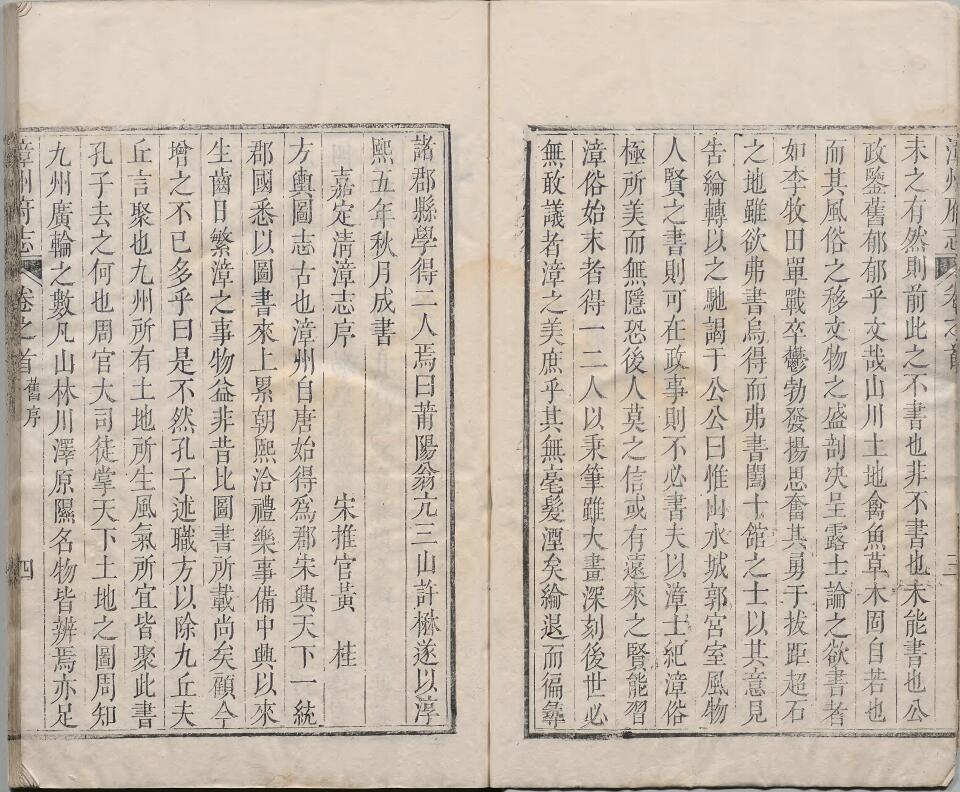 漳州府志 卷之首 三
未之有然則前此之不書也非不書也未能書也公
政鑒舊郁郁乎文哉山川土地禽魚草木固自若也
而其風俗之移文物之盛剖决呈露士論之欲書者
如李牧田單戰卒鬱勃發揚思奮其勇于拔距超石
之地雖欲弗書烏得而弗書閩士館之士以其意見
告綸轉以之馳謁于公公曰惟山水城郭宮室風物
人賢之書則可在政事則不必書夫以漳士紀漳俗
極所美而無隱恐後人莫之信或有遠來之賢能習
漳俗始末者得一二人以秉筆雖大畫深刻後世必
無敢議者漳之美庶乎其無毫髮湮矣綸退而徧彝
諸郡縣學得二人焉曰莆陽翁亢三山許楙遂以淳
熙五年秋月成書
嘉定清漳志序 宋推官黃 桂
方輿圖志古也漳州自唐始得爲郡宋興天下一統
郡國悉以圖書來上累朝熙洽禮樂事備中興以來
生齒日繁漳之事物益非昔比圖書所載尚矣顧今
增之不已多乎曰是不然孔子述職方以除九丘夫
丘言聚也九州所有土地所生風氣所宜皆聚此書
孔子去之何也周官大司徒掌天下土地之圖周知
九州廣輪之數凡山林川澤原隰名物皆辨焉亦足
漳州府志 卷之首 舊序 四